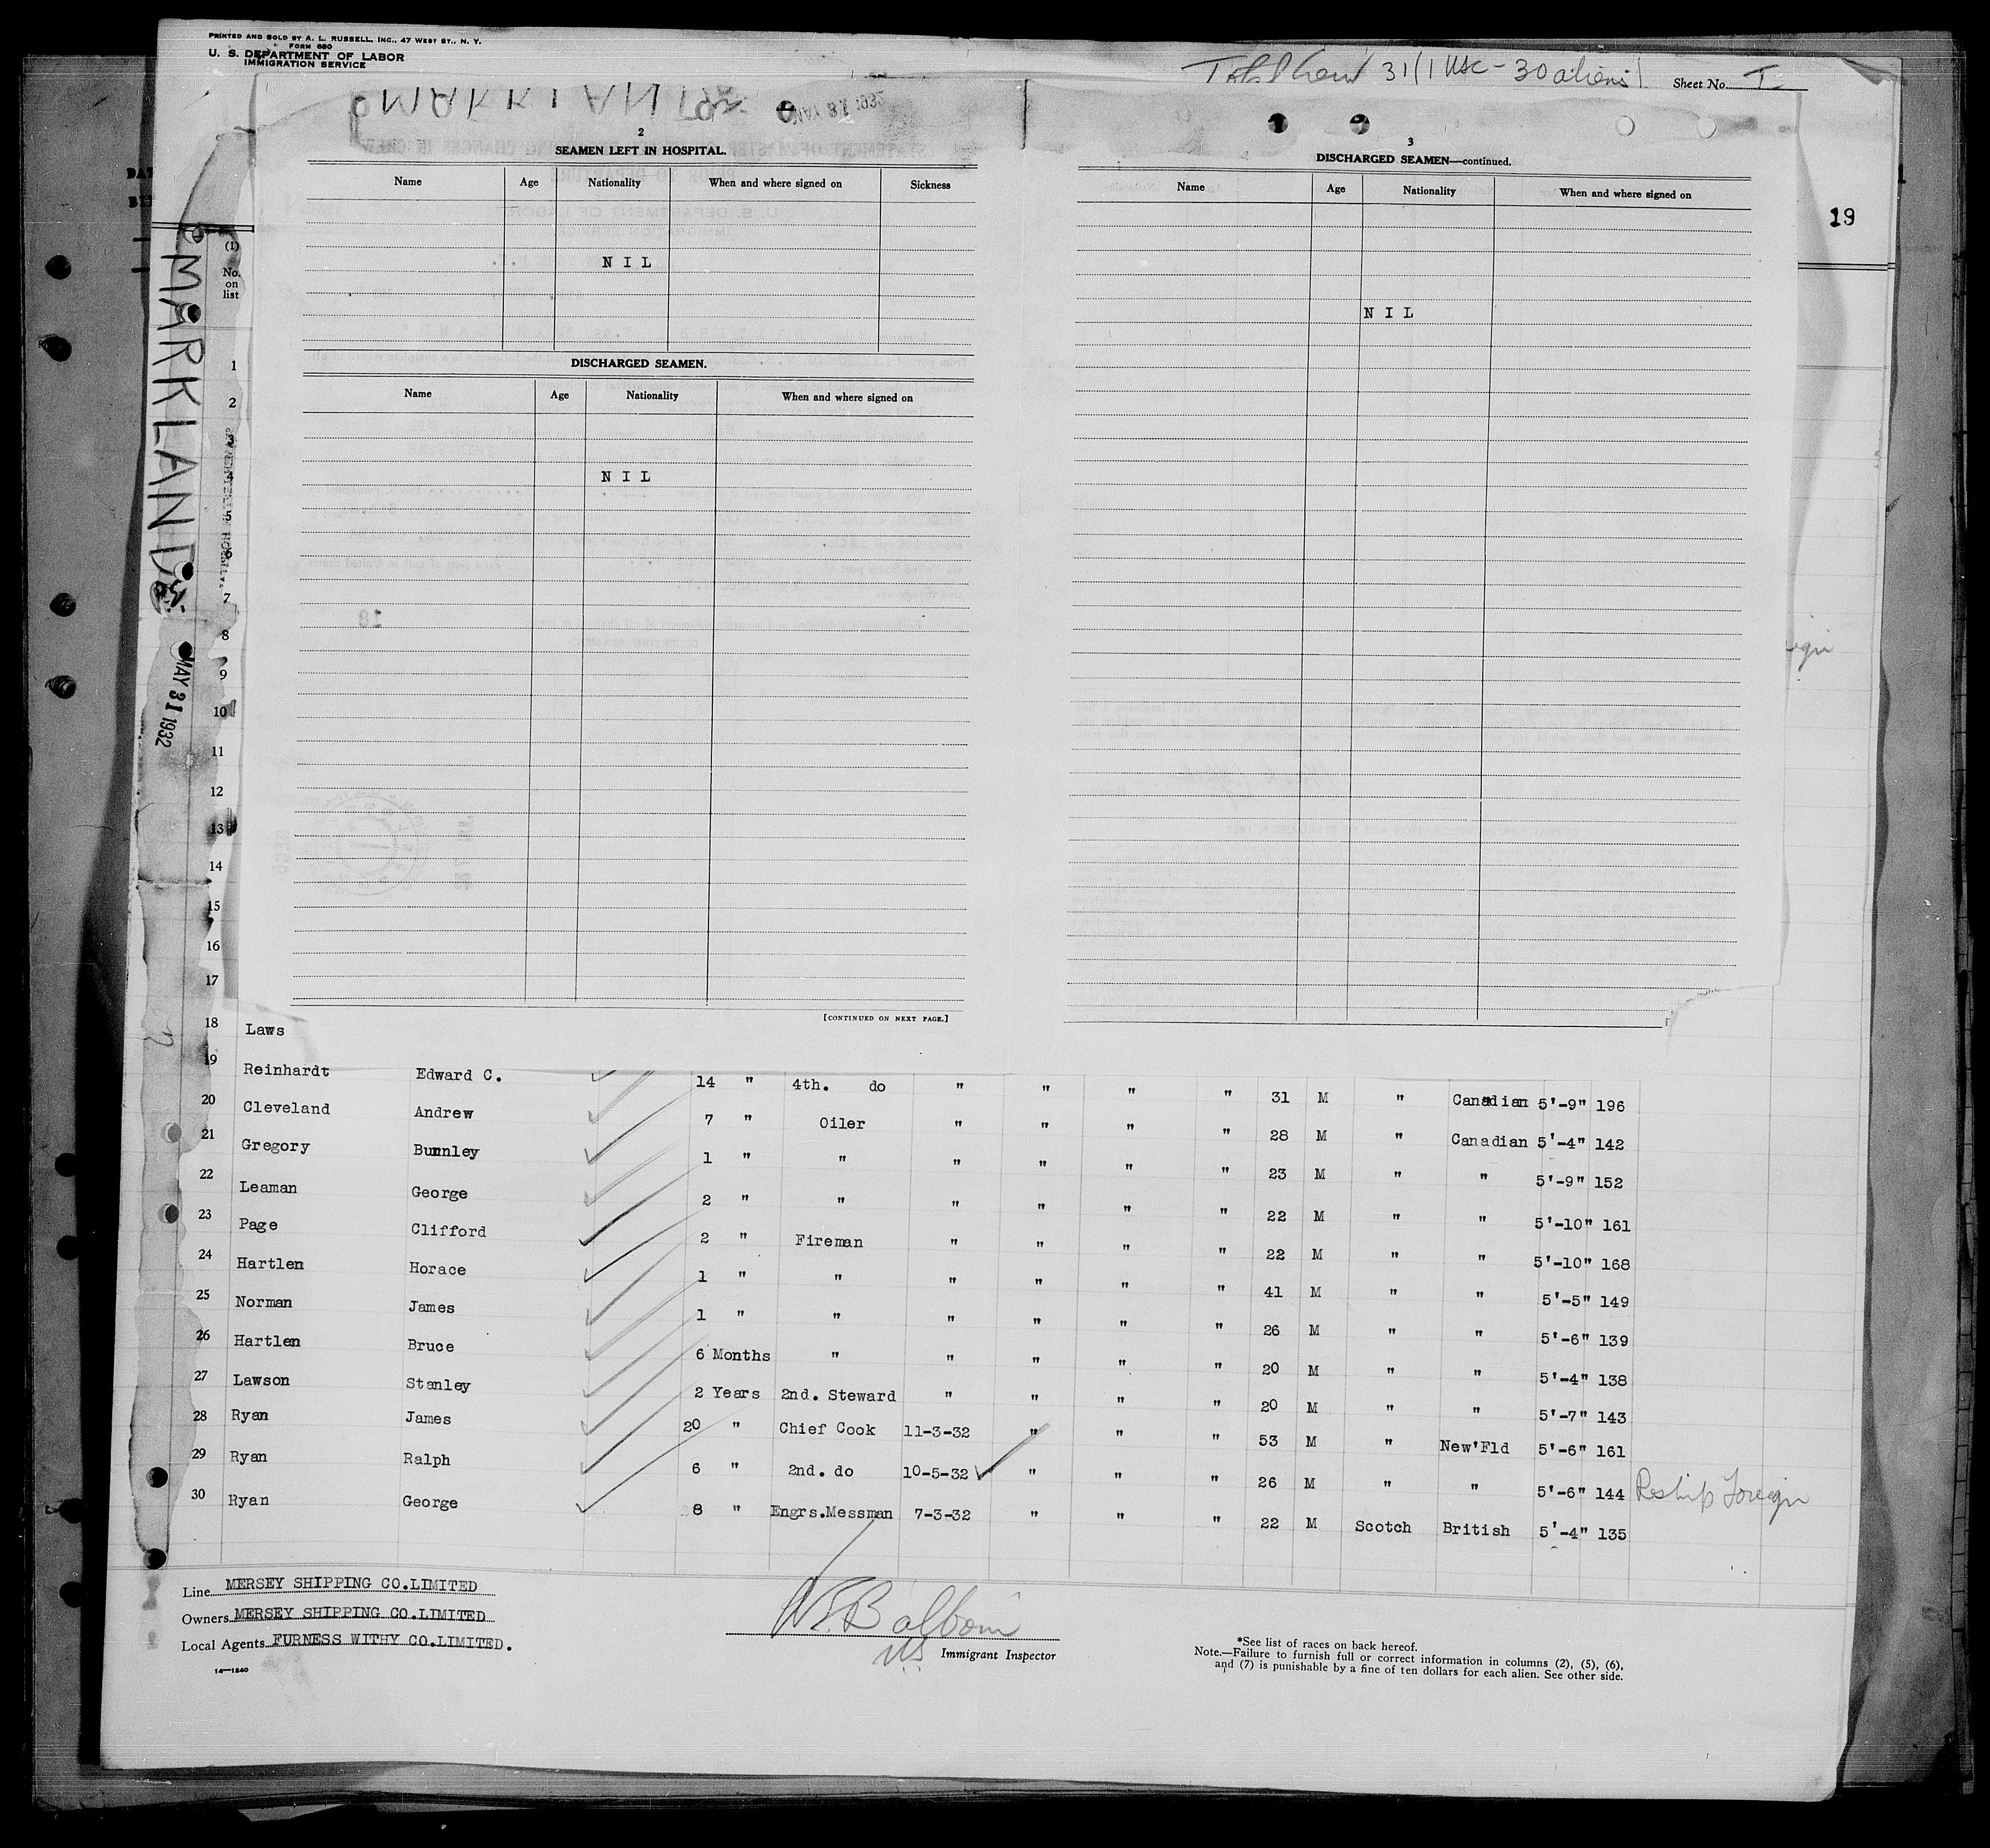 PRINTED AND SOLD BY A. L. RUSSELL, INC., 47 WEST ST., N. Y.
FORM 680
U. S. DEPARTMENT OF LABOR
IMMIGRATION SERVICE
Total Crew 31 (1 USC - 30 aliens)
Sheet No. I
MAY 31 1932
2
SEAMEN LEFT IN HOSPITAL.
Name Age Nationality When and where signed on Sickness
N I L
DISCHARGED SEAMEN.
Name Age Nationality When and where signed on
N I L
[CONTINUED ON NEXT PAGE.]
3
DISCHARGED SEAMEN—continued.
Name Age Nationality When and where signed on
N I L
19
MARKLAND
MAY 31 1932
(1)
No.
on
list
1
2
3
4
5
6
7
8
9
10
11
12
13
14
15
16
17
18 Laws
19 Reinhardt Edward C. 14 " 4th. do " " " " 31 M " Canadian 5'-9" 196
20 Cleveland Andrew 7 " Oiler " " " " 28 M " Canadian 5'-4" 142
21 Gregory Bunnley 1 " " " " " " 23 M " " 5'-9" 152
22 Leaman George 2 " " " " " " 22 M " " 5'-10" 161
23 Page Clifford 2 " Fireman " " " " 22 M " " 5'-10" 168
24 Hartlen Horace 1 " " " " " " 41 M " " 5'-5" 149
25 Norman James 1 " " " " " " 26 M " " 5'-6" 139
26 Hartlen Bruce 6 Months " " " " " 20 M " " 5'-4" 138
27 Lawson Stanley 2 Years 2nd. Steward " " " " 20 M " " 5'-7" 143
28 Ryan James 20 " Chief Cook 11-3-32 " " " 53 M " New'Fld 5'-6" 161
29 Ryan Ralph 6 " 2nd. do 10-5-32 " " " 26 M " " 5'-6" 144 Reship Foreign
30 Ryan George 8 " Engrs.Messman 7-3-32 " " " 22 M Scotch British 5'-4" 135
Line MERSEY SHIPPING CO.LIMITED
Owners MERSEY SHIPPING CO.LIMITED
Local Agents FURNESS WITHY CO.LIMITED.
14—1240
Immigrant Inspector
*See list of races on back hereof.
Note.—Failure to furnish full or correct information in columns (2), (5), (6),
and (7) is punishable by a fine of ten dollars for each alien. See other side.